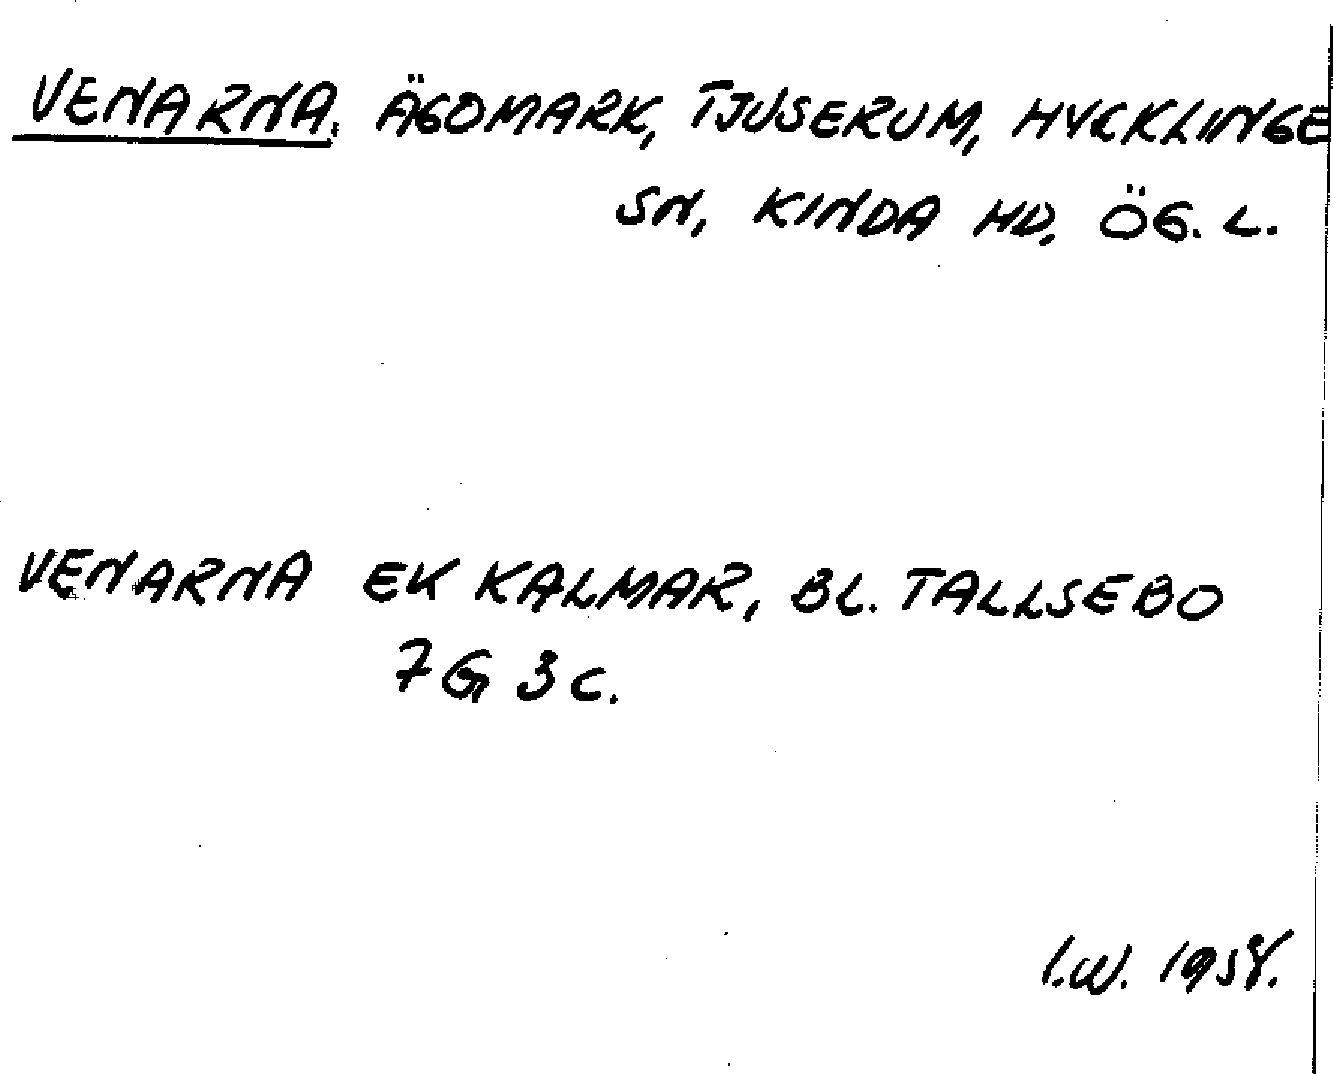 VENARNA, ÄGOMARK, TJUSERUM, HYCKLINGE
SN, KINDA HD, ÖG. L.
VENARNA EK KALMAR, BL. TALLSEBO
7G 3C.
I.W. 1958.